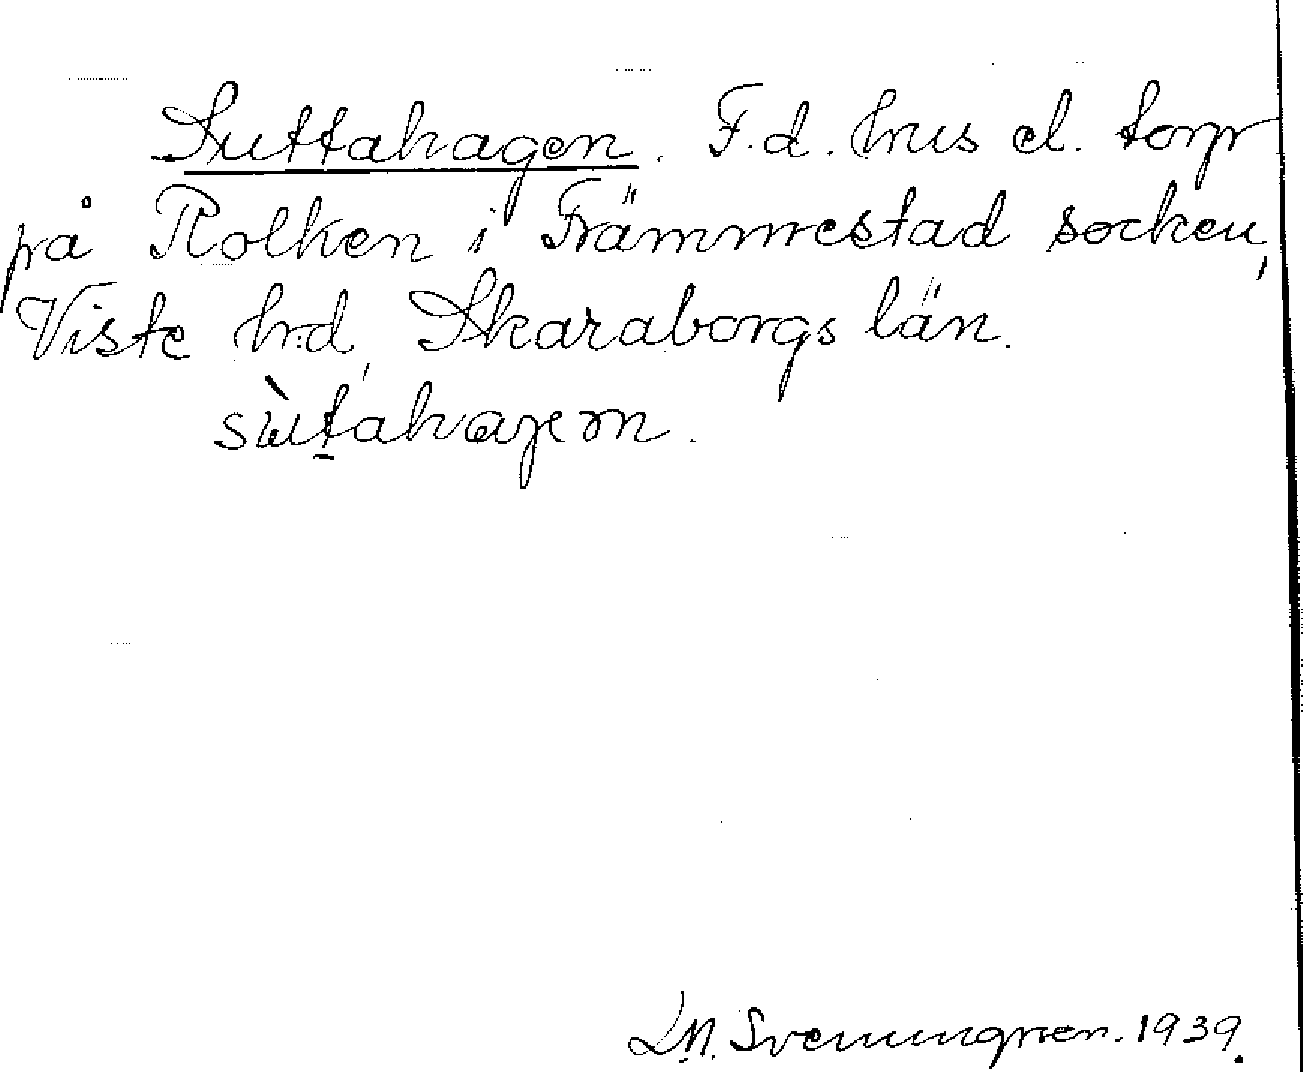 Suttahagen. F.d. hus el. torp
på Rolken i Främmestad socken,
Viste hd, Skaraborgs län.
sùtahagen.
M. Svenungsson. 1939.